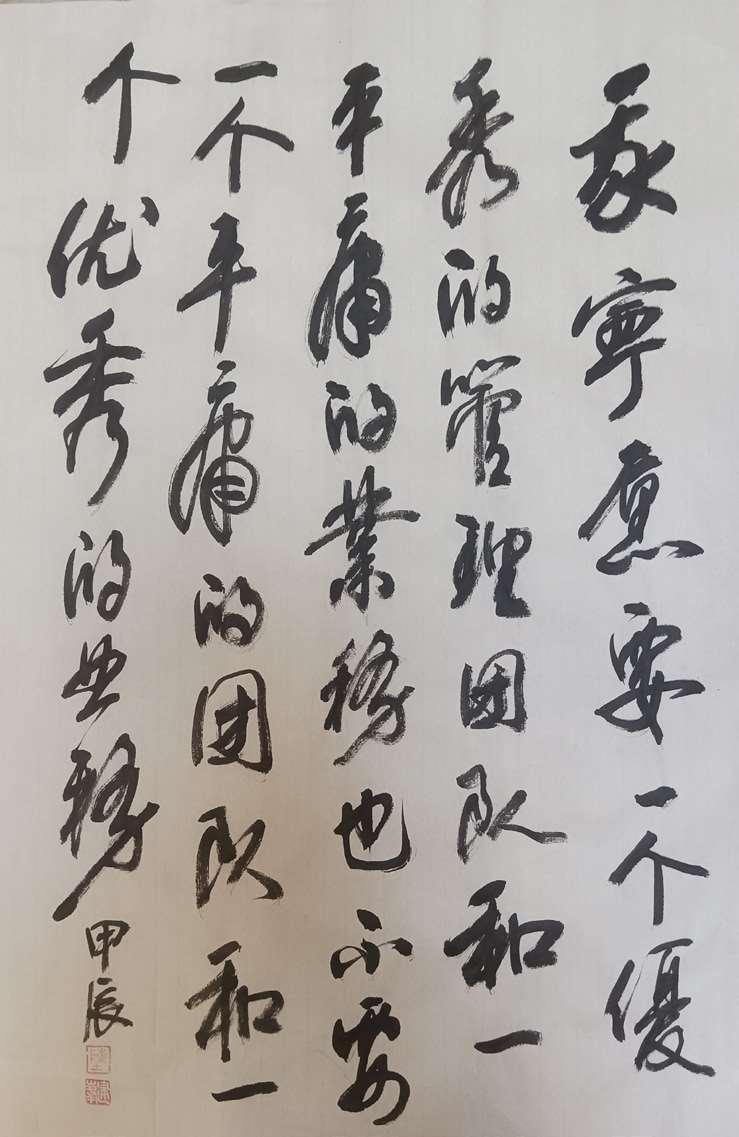 我寧愿要一个優
秀的管理团队和一
平庸的業務也不要
一个平庸的团队和一
个优秀的业務
甲辰